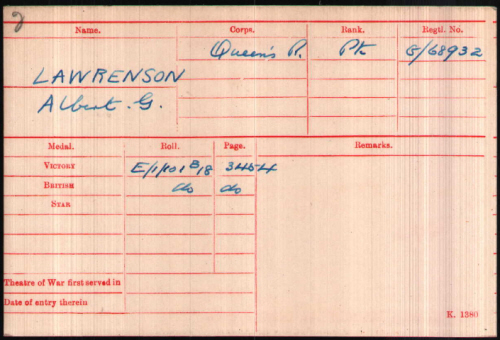 Name. Corps. Rank. Regtl. No.
Queen's R. Pte G/68932
LAWRENSON
Albert. G.
Medal. Roll. Page. Remarks.
VICTORY E/1/101 B18 3454
BRITISH do do
STAR
Theatre of War first served in
Date of entry therein
K. 1380